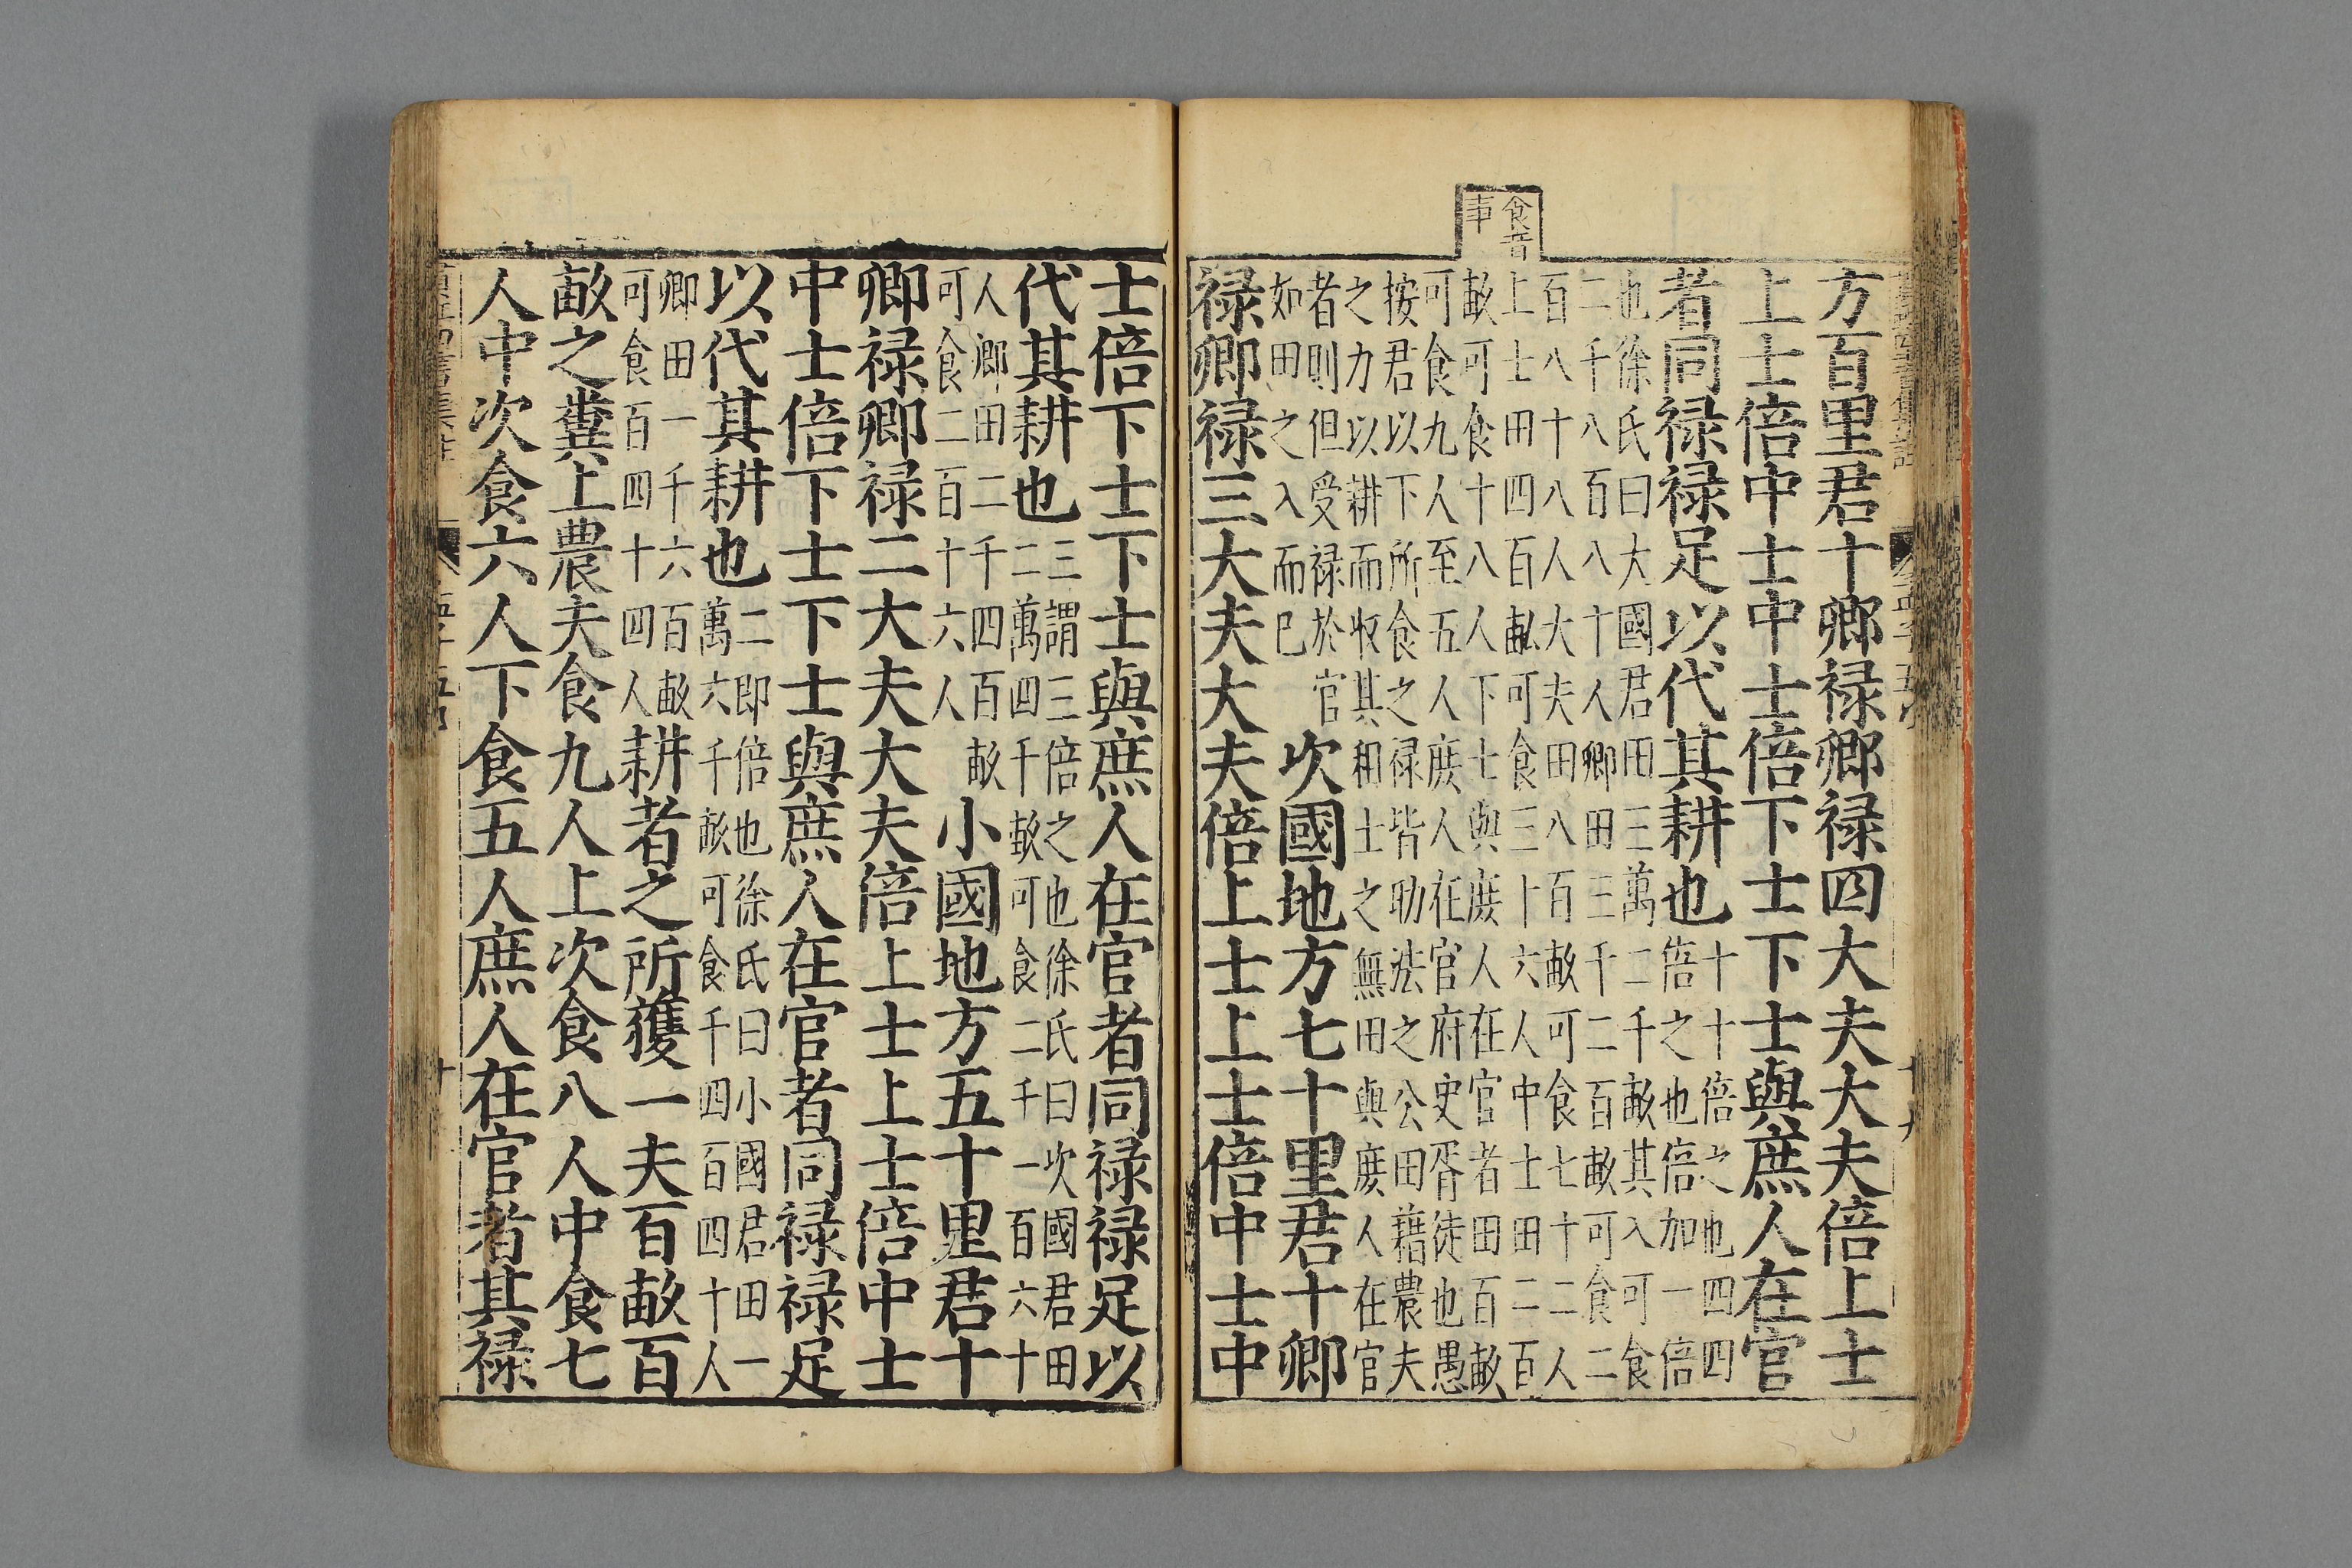 食音
事
方百里君十卿禄卿禄四大夫大夫倍上士
上士倍中士中士倍下士下士與庶人在官
者同禄禄足以代其耕也
十十倍之也四四
倍之也倍加一倍
也徐氏曰大國君田三萬二千畝其入可食
二千八百八十人卿田三千二百畝可食二
百八十八人大夫田八百畝可食七十二人
上士田四百畝可食三十六人中士田二百
畝可食十八人下士與庶人在官者田百畝
可食九人至五人庶人在官府史胥徒也愚
按君以下所食之禄皆助法之公田藉農夫
之力以耕而收其租士之無田與庶人在官
者則但受禄於官
如田之入而已
次國地方七十里君十卿
禄卿禄三大夫大夫倍上士上士倍中士中
士倍下士下士與庶人在官者同禄禄足以
代其耕也
三謂三倍之也徐氏曰次國君田
二萬四千畝可食二千一百六十
人卿田二千四百畝
可食二百十六人
小國地方五十里君十
卿禄卿禄二大夫大夫倍上士上士倍中士
中士倍下士下士與庶人在官者同禄禄足
以代其耕也
二即倍也徐氏曰小國君田一
萬六千畝可食千四百四十人
卿田一千六百畝
可食百四十四人
耕者之所獲一夫百畝百
畝之糞上農夫食九人上次食八人中食七
人中次食六人下食五人庶人在官者其禄